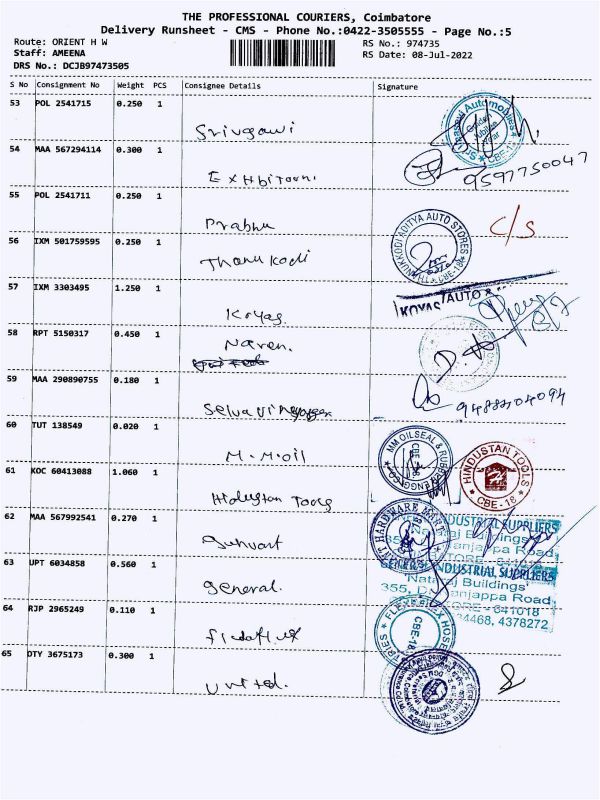 THE PROFESSIONAL COURIERS, Coimbatore
Delivery Runsheet - CMS - Phone No.:0422-3505555 - Page No.:5
Route: ORIENT H W
RS No.: 974735
Staff: AMEENA
RS Date: 08-Jul-2022
DRS No.: DCJB97473505
S No Consignment No Weight PCS Consignee Details Signature
53 POL 2541715 0.250 1
54 MAA 567294114 0.300 1
9597750047
55 POL 2541711 0.250 1
Prabhu
C/S
56 IXM 501759595 0.250 1
Thanukodi
THANUKKODI ADITYA AUTO STORES
CBE-18
57 IXM 3303495 1.250 1
KOYAS AUTO &
Koyas
58 RPT 5150317 0.450 1
Naren.
59 MAA 290890755 0.180 1
9488404094
60 TUT 138549 0.020 1
M.M.oil
MM OILSEAL & RUBBER
61 KOC 60413088 1.060 1
Hidustan Tools
HINDUSTAN TOOLS
CBE-18
62 MAA 567992541 0.270 1
HARDWARE MART
INDUSTRIAL SUPPLIERS
63 UPT 6034858 0.560 1
general.
INDUSTRIAL SUPPLIERS
'Nataraj Buildings'
641018
34468, 4378272
64 RJP 2965249 0.110 1
HOSE
CBE-18
65 DTY 3675173 0.300 1
United.